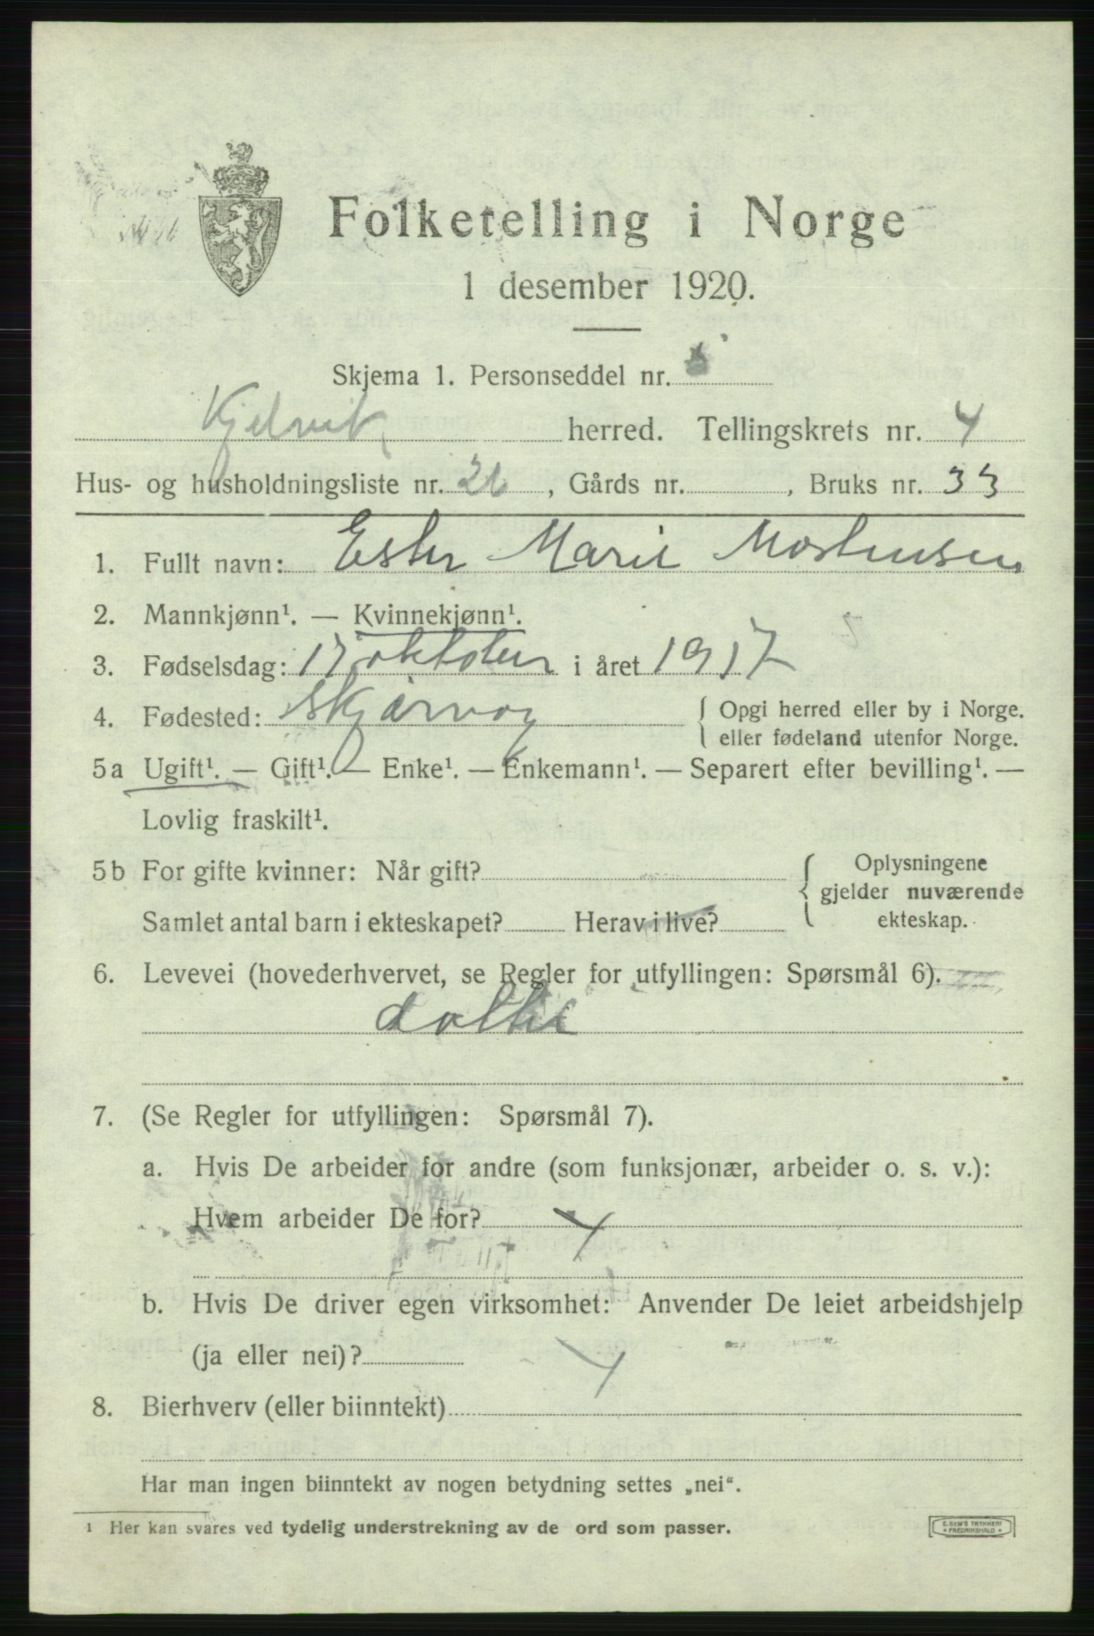 Folketelling i Norge
1 desember 1920.
Skjema 1. Personseddel nr.
Kjelvik herred. Tellingskrets nr. 4
Hus- og husholdningsliste nr. 26, Gårds nr. , Bruks nr. 33
1. Fullt navn: Ester Marie Mortensen
2. Mannkjønn¹. — Kvinnekjønn¹.
3. Fødselsdag: 17 oktober i året 1917
4. Fødested: Skjærvøy { Opgi herred eller by i Norge.
eller fødeland utenfor Norge.
5a Ugift¹. — Gift¹. — Enke¹. — Enkemann¹. — Separert efter bevilling¹. —
Lovlig fraskilt¹.
5b For gifte kvinner: Når gift? { Oplysningene
gjelder nuværende
Samlet antal barn i ekteskapet? Herav i live? ekteskap.
6. Levevei (hovederhvervet, se Regler for utfyllingen: Spørsmål 6).
datter
7. (Se Regler for utfyllingen: Spørsmål 7).
a. Hvis De arbeider for andre (som funksjonær, arbeider o. s. v.):
Hvem arbeider De for?
b. Hvis De driver egen virksomhet: Anvender De leiet arbeidshjelp
(ja eller nei)?
8. Bierhverv (eller biinntekt)
Har man ingen biinntekt av nogen betydning settes „nei“.
¹ Her kan svares ved tydelig understrekning av de ord som passer.